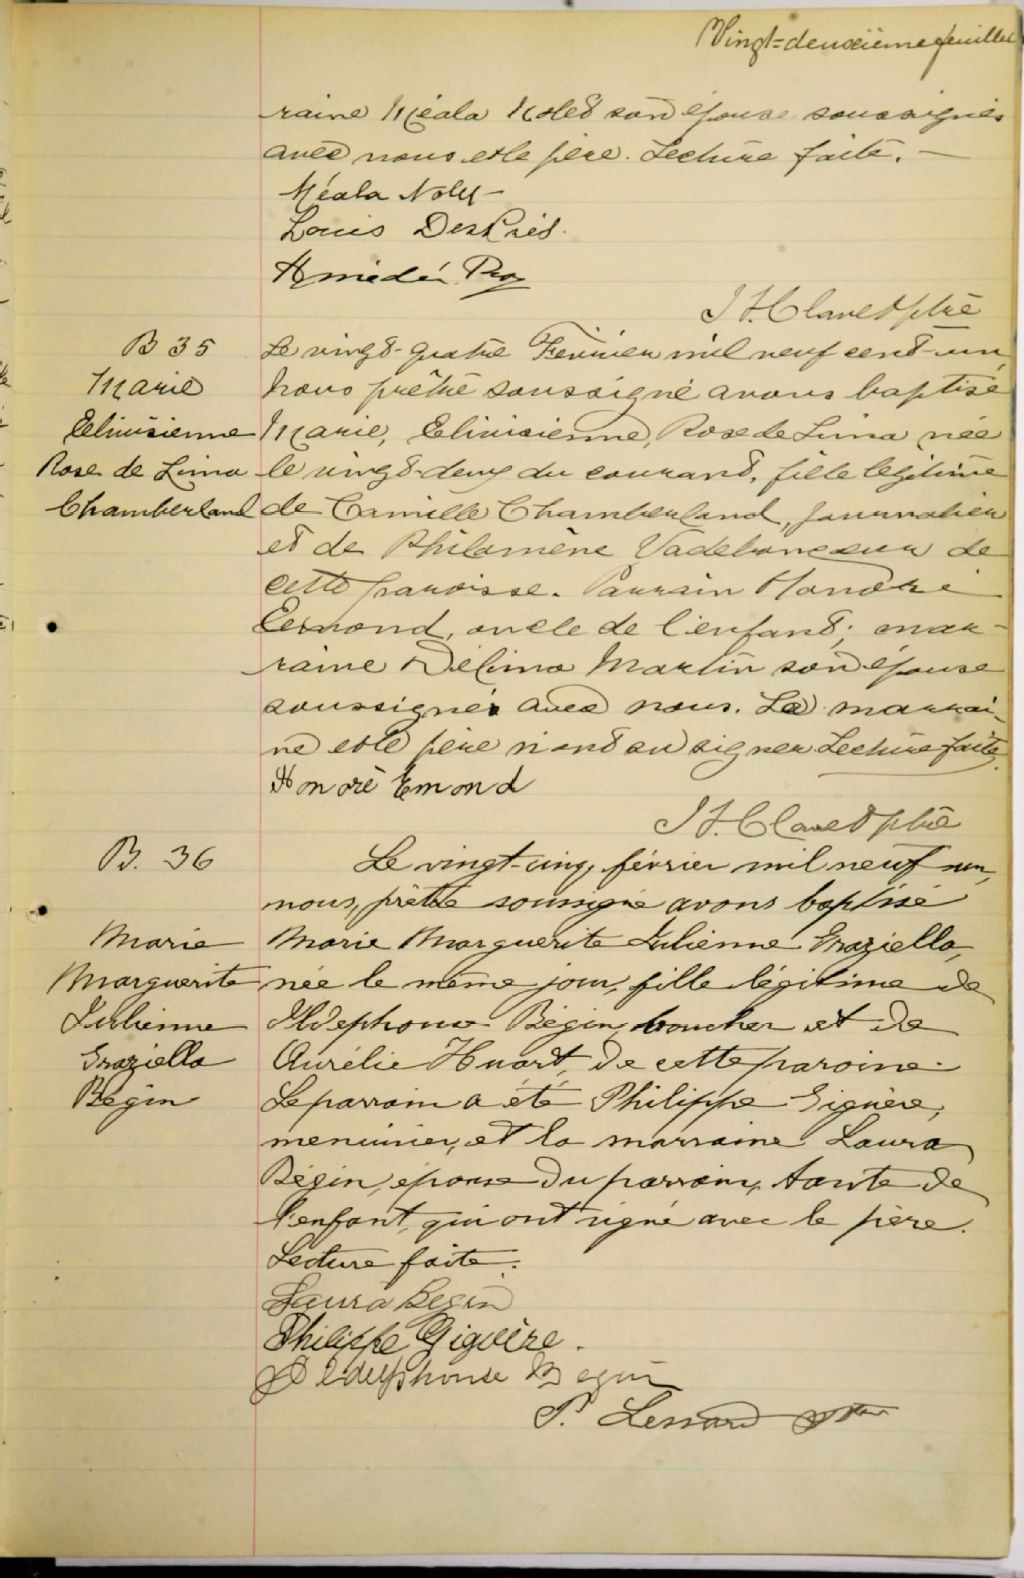 Vingt-deuxième feuillet
raine Méala Nolet son épouse soussignés
avec nous et le père. Lecture faite. —
Méala Nolet
Louis Després.
Amédée Roy
J. H. Clavet ptre
B 35
Marie
Elmisienne
Rose de Lima
Chamberland
Le vingt-quatre Février mil neuf cent-un
nous prêtre soussigné avons baptisé
Marie, Elmisienne, Rose de Lima née
le vingt-deux du courant, fille légitime
de Camille Chamberland, journalier
et de Philomène Vadeboncoeur de
cette paroisse. Parrain Honoré
Eemond, oncle de l'enfant; mar-
raine Délima Martin son épouse
soussignés avec nous. La marrai-
ne et le père n'ont su signer. Lecture faite.
Honoré Emond
J. H. Clavet ptre
B. 36
Marie
Marguerite
Julienne
Graziella
Bégin
Le vingt-cinq, février mil neuf un,
nous, prêtre soussigné avons baptisé
Marie Marguerite Julienne Graziella,
née le même jour, fille légitime de
Ildephonse Bégin, boucher et de
Aurélie Huart, de cette paroisse.
Le parrain a été Philippe Giguère,
menuisier, et la marraine Laura
Bégin, épouse du parrain, tante de
l'enfant, qui ont signé avec le père.
Lecture faite.
Laura Begin
Philippe Giguère.
Ildelphonse Begin
P. Lessard ptre